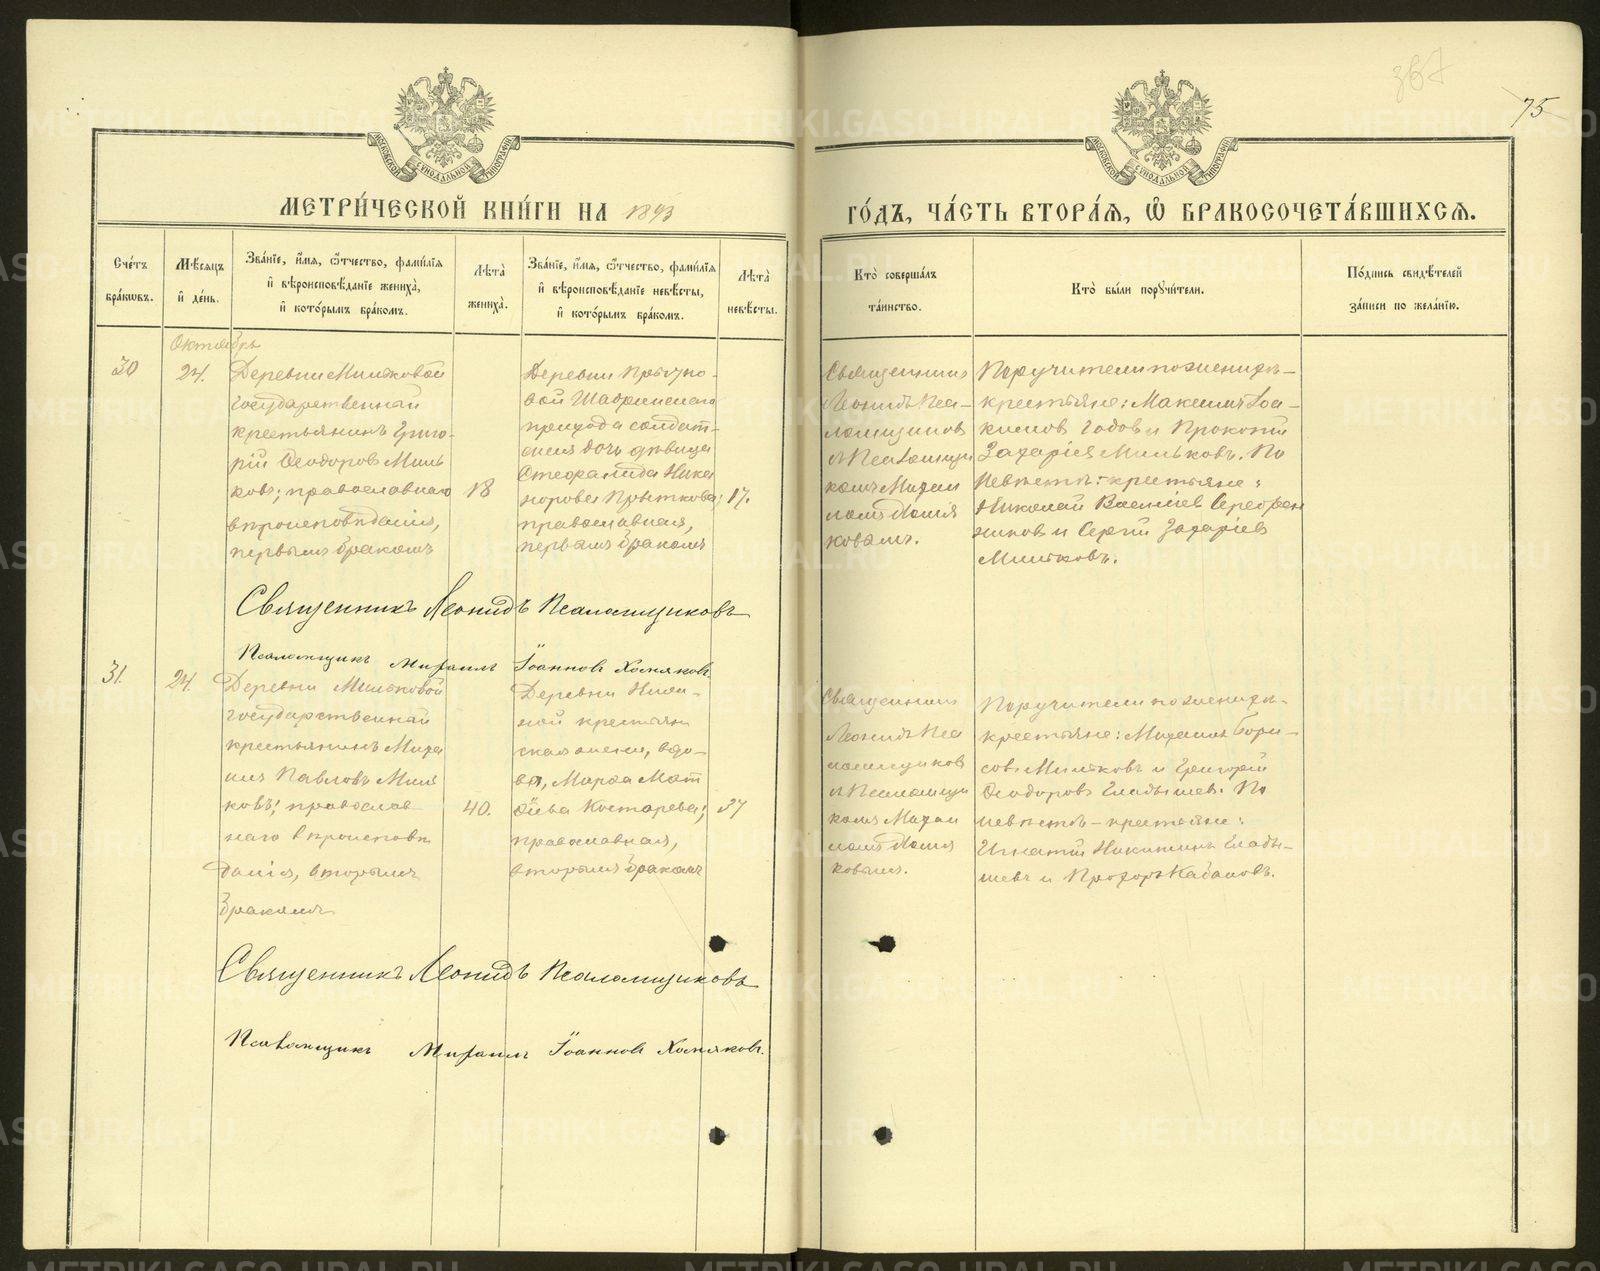 367
75
МОСКОВСКОЙ СѴНОДАЛЬНОЙ ТИПОГРАФІИ
МОСКОВСКОЙ СѴНОДАЛЬНОЙ ТИПОГРАФІИ
МЕТРИ́ЧЕСКОЙ КНИ́ГИ НА 1893
ГО́ДЪ, ЧА́СТЬ ВТОРА́Я, Ѽ БРАКОСОЧЕТА́ВШИХСЯ.
Сче́тъ бра́кѡвъ.
Мѣ́сяцъ и҆ де́нь.
Зва́нїе, и҆́мя, ѻ҆́тчество, фами́лїя
и҆ вѣроисповѣ́данїе жениха̀,
и҆ кото́рымъ бра́комъ.
Лѣ̑та жениха̀.
Зва́нїе, и҆́мя, ѻ҆́тчество, фами́лїя
и҆ вѣроисповѣ́данїе невѣ́сты,
и҆ кото́рымъ бра́комъ.
Лѣ̑та невѣ́сты.
Кто̀ соверша́лъ
та́инство.
Кто̀ бы́ли порꙋчи́тели.
По́дпись свидѣ́телей
за́писи по жела́нїю.
Октябрь
30
24.
Деревни Мильковой
государственный
крестьянинъ Григо-
рій Ѳеодоровъ Миль
ковъ; православнаго
вѣроисповѣданія,
первымъ бракомъ
18
Деревни
вой Шабринскаго
прихода солдат-
ская дочь дѣвица
Стефанида Ника
норова
православная,
первымъ бракомъ
17.
Священникъ
Леонидъ Пса-
ломщиковъ
съ Псаломщи
комъ Михаи
ломъ Хомя
ковымъ.
Поручители по женихѣ-
крестьяне: Максимъ Іоа-
кимовъ Годовъ и Прокопій
Захаріевъ Мильковъ. По
невѣстѣ: крестьяне:
Николай Василіевъ Серебрен
никовъ и Сергій Захаріевъ
Мильковъ.
Священникъ Леонидъ Псаломщиковъ
Псаломщикъ Михаилъ Іоанновъ Хомяковъ
31.
24.
Деревни Мильковой
государственный
крестьянинъ Миха
илъ Павловъ Миль
ковъ; православ
наго вѣроисповѣ
данія, вторымъ
бракомъ
40.
Деревни
ной крестьян
ская жена, вдо-
ва, Марѳа Мат
ѳіева Костарева;
православная,
вторымъ бракомъ
37
Священникъ
Леонидъ Пса
ломщиковъ
съ Псаломщи
комъ Михаи
ломъ Хомя
ковымъ.
Поручители по женихѣ-
крестьяне: Михаилъ Бори-
совъ Мильковъ и Григорій
Ѳеодоровъ Гладышевъ. По
невѣстѣ - крестьяне:
Игнатій Никитинъ Глады-
шевъ и Прохоръ Кабановъ.
Священникъ Леонидъ Псаломщиковъ
Псаломщикъ Михаилъ Іоанновъ Хомяковъ.
METRIKI.GASO-URAL.RU